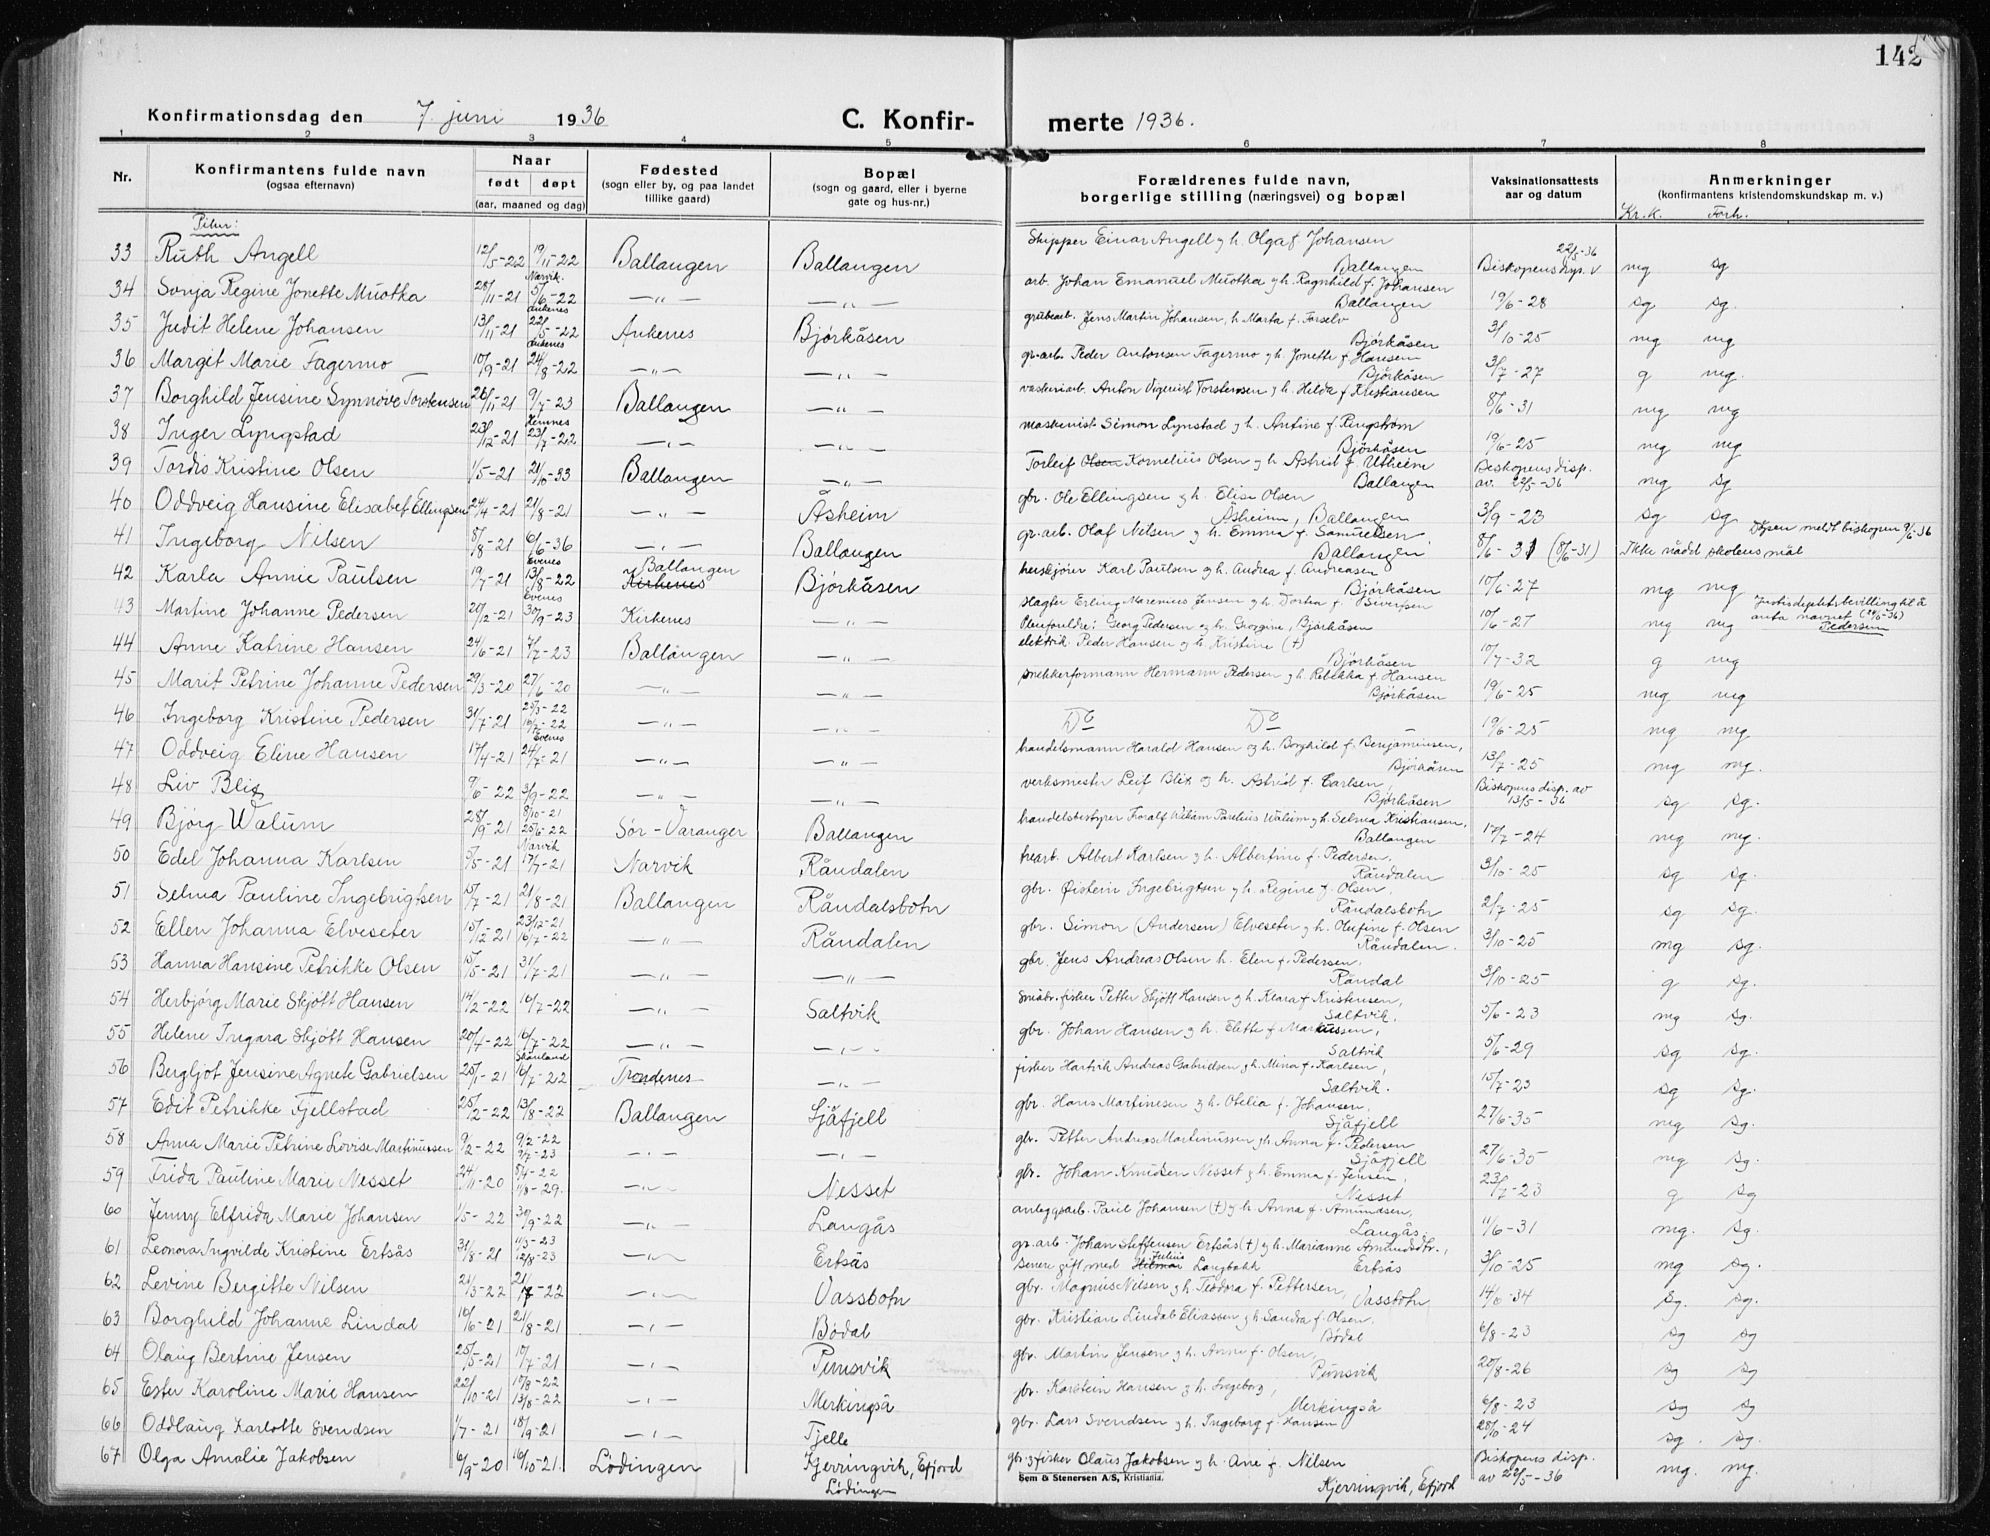 142
Konfirmationsdag den 7. juni 1936 C. Konfir- merte 1936.
1 2 3 4 5 6 7 8
Nr. Konfirmantens fulde navn (ogsaa efternavn) Naar født døpt (aar, maaned og dag) Fødested (sogn eller by, og paa landet tillike gaard) Bopæl (sogn og gaard, eller i byerne gate og hus-nr.) Forældrenes fulde navn, borgerlige stilling (næringsvei) og bopæl Vaksinationsattests aar og datum Anmerkninger (konfirmantens kristendomskundskap m. v.)
Kr.k. Forh.
Piker:
33 Ruth Angell 12/5-22 19/11-22 Ballangen Ballangen Skipper Einar Angell og h. Olga f. Johansen Ballangen Biskopens disp. v 22/5-36 mg sg
34 Sonja Regine Jonette Muotka 28/11-21 Narvik 5/6-22 —"— —"— arb. Johan Emanuel Muotka og h. Ragnhild f. Johansen Ballangen 19/6-28 sg sg.
35 Judit Helene Johansen 13/11-21 Ankenes 22/5-22 Ankenes Bjørkåsen grubearb. Jens Martin Johansen, h. Marta f. Forselv Bjørkåsen 3/10-25 mg mg
36 Margit Marie Fagermo 10/9-21 Ankenes 24/8-22 —"— —"— gr.arb. Peder Antonsen Fagermo og h. Jonette f. Hansen Bjørkåsen 3/7-27 g mg.
37 Borghild Jensine Synnøve Torstensen 26/11-21 9/7-23 Ballangen —"— vaskeriarb. Anton Torstensen og h. Helda f. Kristiansen 8/6-31 mg mg
38 Inger Lyngstad 23/12-21 Hemnes 23/7-22 —"— —"— maskinist Simon Lynstad og h. Antine f. Ringstrøm Bjørkåsen 19/6-25 mg mg
39 Tordis Kristine Olsen 1/5-21 21/10-33 Ballangen —"— Torleif Olsen Kornelius Olsen og h. Astrid f. Utheim Ballangen Biskopens disp. av. 22/5-36 mg sg
40 Oddveig Hansine Elisabet Ellingsen 24/4-21 21/8-21 —"— Åsheim gbr. Ole Ellingsen og h. Elise Olsen Åsheim, Ballangen 3/9-23 sg sg
41 Ingeborg Nilsen 8/8-21 6/6-36 —"— Ballangen gr.arb. Olaf Nilsen og h. Emma f. Samuelsen. Ballangen 8/6-31 (8/6-31) Ikke nådd skolens mål Dåpen meldt biskopen 9/6-36
42 Karla Annie Paulsen 19/7-21 Evenes 13/8-22 Ballangen Kirkenes Bjørkåsen Karl Paulsen og h. Andrea f. Andreasen Bjørkåsen 10/6-27 mg mg
43 Martine Johanne Pedersen 20/12-21 Evenes 30/9-23 Kirkenes —"— Hagter Erling Marenius Jensen og h. Dortea f. Sivertsen Georg Pedersen og h. Georgine, Bjørkåsen 10/6-27 mg mg Justisdep. bevilling til å anta navnet Pedersen
44 Anne Katrine Hansen 24/6-21 7/7-23 Ballangen —"— elektrik. Peder Hansen og h. Kristine (†) Bjørkåsen 10/7-32 g mg
45 Marit Petrine Johanne Pedersen 29/3-20 27/6-20 —"— —"— snekkerformann Hermann Pedersen og h. Rebekka f. Hansen Bjørkåsen 19/6-25 mg mg
46 Ingeborg Kristine Pedersen 31/7-21 25/3-22 16/7-22 —"— —"— Do Do 19/6-25 mg mg
47 Oddveig Eline Hansen 17/4-21 Evenes 24/7-21 —"— —"— handelsmann Harald Hansen og h. Borghild f. Benjaminsen, Bjørkåsen 13/7-25 mg mg.
48 Liv Blix 9/6-22 3/9-22 —"— —"— verksmester Leif Blix og h. Astrid f. Carlsen, Bjørkåsen Biskopens disp. av 13/5-36 sg sg.
49 Bjørg Walum 28/9-21 8/10-21 25/6-22 Sør-Varanger Ballangen handelsbestyrer Toralf Walum og h. Selma Kristiansen, Ballangen 17/7-24 mg mg.
50 Edel Johanna Karlsen 5/5-21 Narvik 17/7-21 Narvik Råndalen Albert Karlsen og h. Albertine f. Pedersen, Råndalen 3/10-25 sg sg.
51 Selma Pauline Ingebrigtsen 15/7-21 21/8-21 Ballangen Råndalsbotn gbr. Øistein Ingebrigtsen og h. Regine f. Olsen, Råndalsbotn 2/7-25 sg sg.
52 Ellen Johanna Elveseter 15/12-21 23/12-21 16/7-22 —"— Råndalen gbr. Simon (Andersen) Elveseter og h. Olufine f. Olsen Råndalen. 3/10-25 mg sg.
53 Hanna Hansine Petrikke Olsen 15/5-21 31/7-21 —"— —"— gbr. Jens Andreas Olsen h. Elen f. Pedersen, Råndal 3/10-25 g sg.
54 Herbjørg Marie Skjøtt Hansen 14/2-22 16/7-22 —"— Saltvik småbr. fisker Petter Skjøtt Hansen og h. Klara f. Kristensen, Saltvik. 5/6-23 mg sg.
55 Helene Ingara Skjøtt Hansen 20/4-22 16/7-22 —"— —"— gbr. Johan Hansen og h. Elette f. Markussen, Saltvik 5/6-29 sg sg.
56 Bergljot Jensine Agnete Gabrielsen 25/1-21 Skånland 16/7-22 Trondenes —"— fisker Hartvik Andreas Gabrielsen og h. Mina f. Karlsen, Saltvik. 15/7-23 sg sg.
57 Edit Petrikke Fjellstad 25/2-22 13/8-22 Ballangen Sjåfjell gbr. Hans Martinesen og h. Otelia f. Johansen, Sjåfjell 27/6-35 mg sg.
58 Anna Marie Petrine Lovise Martinussen 9/2-22 9/2-22 9/7-23 —"— —"— gbr. Petter Andreas Martinussen og h. Anna f. Pedersen Sjåfjell 27/6-35 mg sg.
59 Frida Pauline Marie Nesset 24/11-20 8/4-22 11/8-29. —"— Nesset gbr. Johan Knudsen Nesset og h. Emma f. Jensen, Nesset 23/7-23 g sg
60 Jenny Elfrida Marie Johansen 1/5-22 30/9-22 —"— Langås anleggsarb. Paul Johansen (†) og h. Anna f. Amundsen, Langås. 11/6-31 mg. sg.
61 Leonora Ingvilde Kristine Ertsås 31/8-21 11/3-23 12/8-23 —"— Ertsås gr.arb. Johan Steffensen Ertsås (†) og h. Marianne Amundsdtr., senere gift med Hilmar Julius Langbakk Ertsås 3/10-25 mg sg.
62 Levine Bergitte Nilsen 21/3-22 21/7-22 —"— Vassbotn gbr. Magnus Nilsen og h. Teodora f. Pettersen, Vassbotn 14/6-34 sg. sg.
63 Borghild Johanne Lindal 16/6-21 21/8-21 —"— Bødal gbr. Kristian Lindal Eliassen og h. Sandra f. Olsen, Bødal 6/8-23 sg sg
64 Olaug Bertine Jensen 25/5-21 10/7-21 —"— Punsvik gbr. Martin Jensen og h. Anne f. Olsen, Punsvik 20/8-26 sg sg
65 Ester Karoline Marie Hansen 22/10-21 10/8-22 13/8-22 —"— Merkingså gbr. Karstein Hansen og h. Ingeborg, Merkingså 6/8-23 sg sg
66 Oddlaug Karlotte Svendsen 1/7-21 18/9-21 —"— Fjelle gbr. Lars Svendsen og h. Ingeborg f. Hansen 28/6-24 sg. sg.
67 Olga Amalie Jakobsen 6/9-20 16/10-21. Lødingen Kjerringvik, Efjord Lødingen gbr. og fisker Olaus Jakobsen og h. Ane f. Nilsen Kjerringvik, Efjord Biskopens disp. av 22/5-36 mg. mg.
Sem & Stenersen A/S, Kristiania.